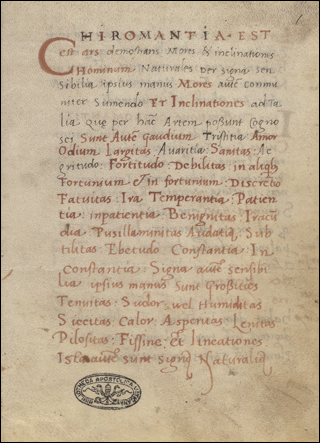 CHIROMANTIA · EST
est ars demostrans Mores & inclinationes
Hominum Naturales per signa sen
sibilia ipsius manus Mores aute comu
niter Sumendo Et Inclinationes ad talia
que per hac Artem possunt cogno
sci Sunt Aute Gaudium Tristitia Amor
Odium Largitas Avaritia Sanitas Ae
gritudo Fortitudo Debilitas in aliqb
Fortunium & in fortunium Discretio
Fatuitas Ira Temperantia Patien
tia inpatientia Benignitas Iracu
dia Pusillaminitas Audatia Sub
tilitas Ebetudo Constantia In
constantia Signa aute sensibi
lia ipsius manus Sunt Grossities
Tenuitas Sudor vel Humiditas
Siccitas Calor Asperitas Lenitas
Pilositas Fissine et lineationes
Ista aute sunt signa Naturalia
BIBLIOTHECA APOSTOLICA VATICANA